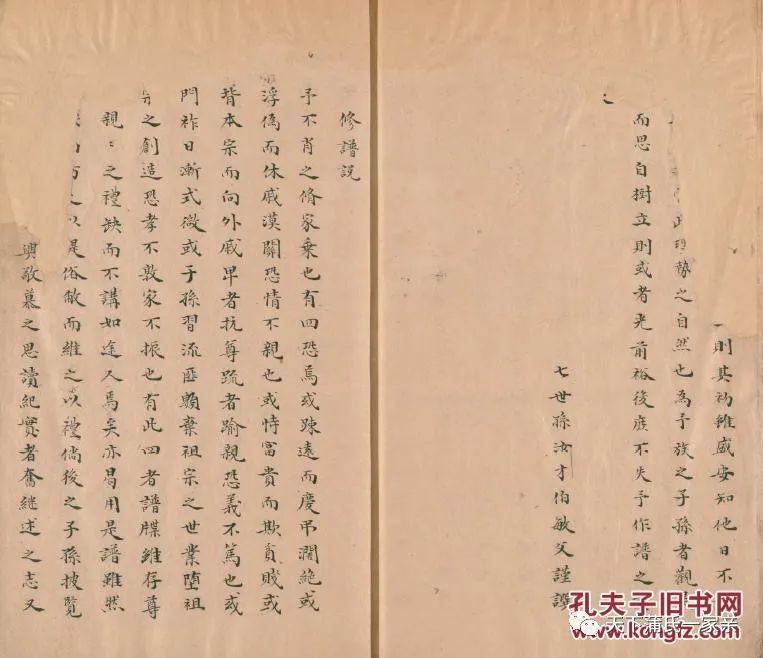 則其初雖盛安知他日不
勢之自然也為予族之子孫者觀
而思自樹立則或者光前裕後庶不失予作譜之
七世孫汝才伯敏父謹譔
修譜說
予不肖之脩家乗也有四恐焉或踈遠而慶弔濶絶或
浮偽而休戚漠關恐情不親也或恃富貴而欺貧賤或
背本宗而向外戚卑者抗尊疏者踰親恐義不篤也或
門祚日漸式微或子孫習流匪類棄祖宗之世業堕祖
之創造恐孝不敦家不振也有此四者譜牒維存尊
親之禮缺而不講如途人焉矣亦曷用是譜雖然
以是俗敝而維之以禮倘後之子孫披覽
興敬慕之思讀紀實者奮継述之志又
孔夫子旧书网
天下蒲氏一家亲
www.kongfz.com